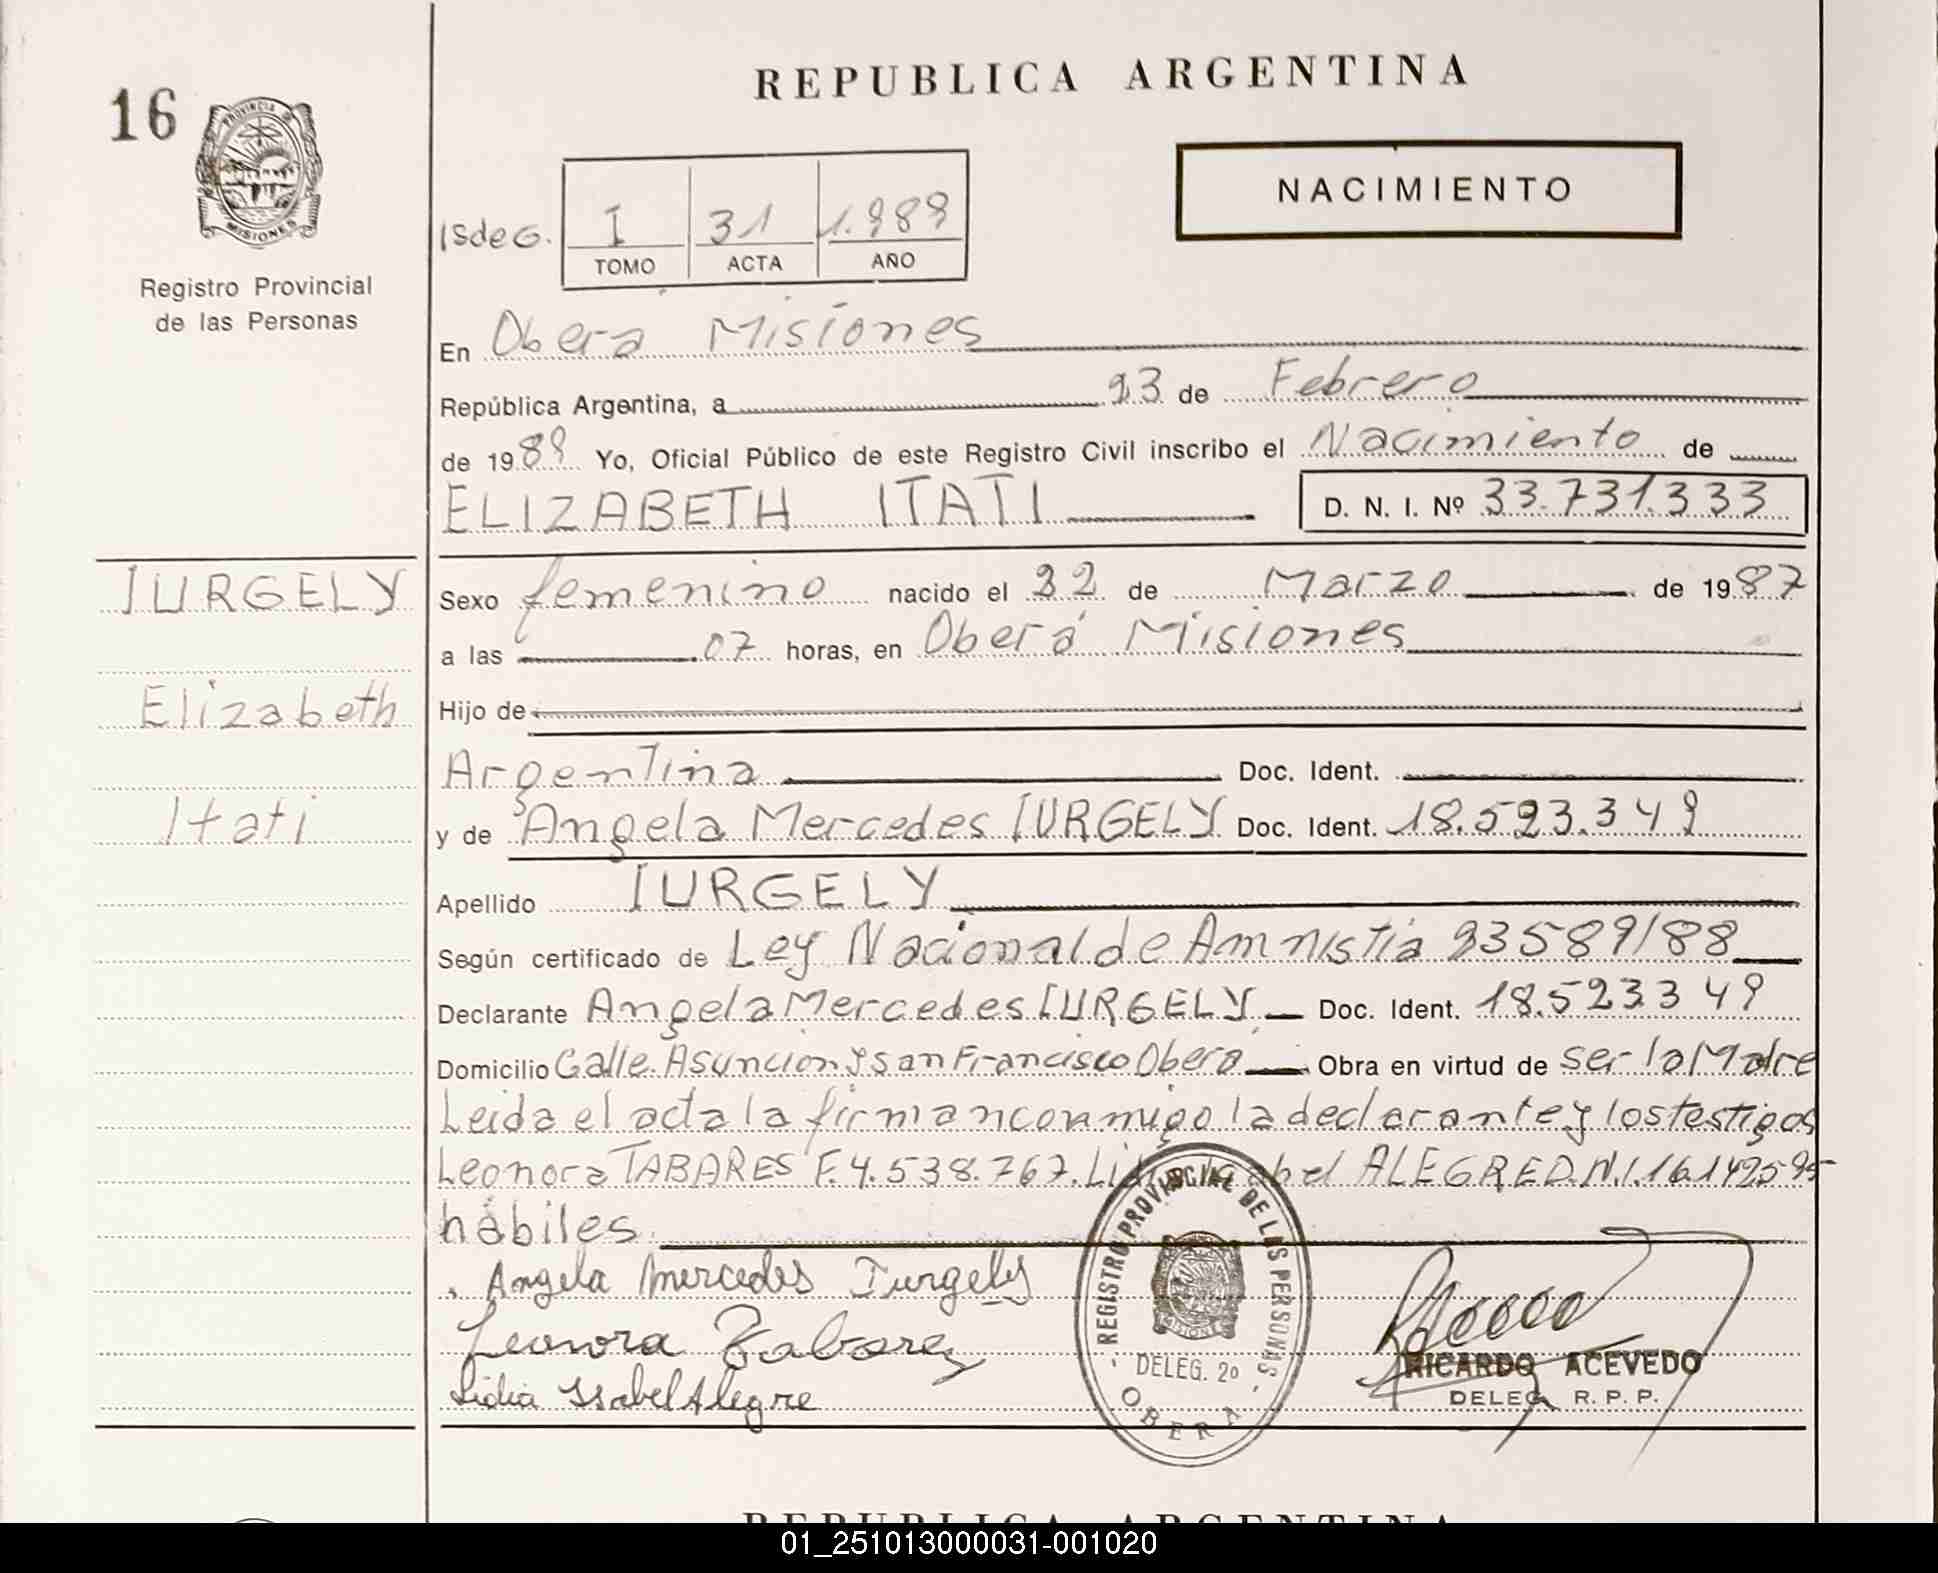 REPUBLICA ARGENTINA
16
PROVINCIA DE MISIONES
Registro Provincial
de las Personas
NACIMIENTO
ISdeG. I 31 1.989
TOMO ACTA AÑO
En Obera Misiones
República Argentina, a 23 de Febrero
de 1989 Yo, Oficial Público de este Registro Civil inscribo el Nacimiento de
ELIZABETH ITATI D. N. I. Nº 33.731.333
IURGELY
Elizabeth
Itati
Sexo femenino nacido el 22 de Marzo de 1987
a las 07 horas, en Oberá Misiones
Hijo de
Argentina Doc. Ident.
y de Angela Mercedes IURGELY Doc. Ident. 18.523.349
Apellido IURGELY
Según certificado de Ley Nacional de Amnistia 23589/88
Declarante Angela Mercedes IURGELY Doc. Ident. 18.523349
Domicilio Calle Asuncion y san Francisco Obera Obra en virtud de ser la Madre
Leida el acta la firman conmigo la declarante y los testigos
Leonora TABARES F.4.538.767. Lidia Isabel ALEGRE D.N.I. 16.142595
hábiles
Angela Mercedes Iurgely
Leonora Tabarez
Lidia Isabel Alegre
REGISTRO PROVINCIAL DE LAS PERSONAS
MISIONES
DELEG. 2º
OBERA
RICARDO ACEVEDO
DELEG. R. P. P.
REPUBLICA ARGENTINA
01_251013000031-001020